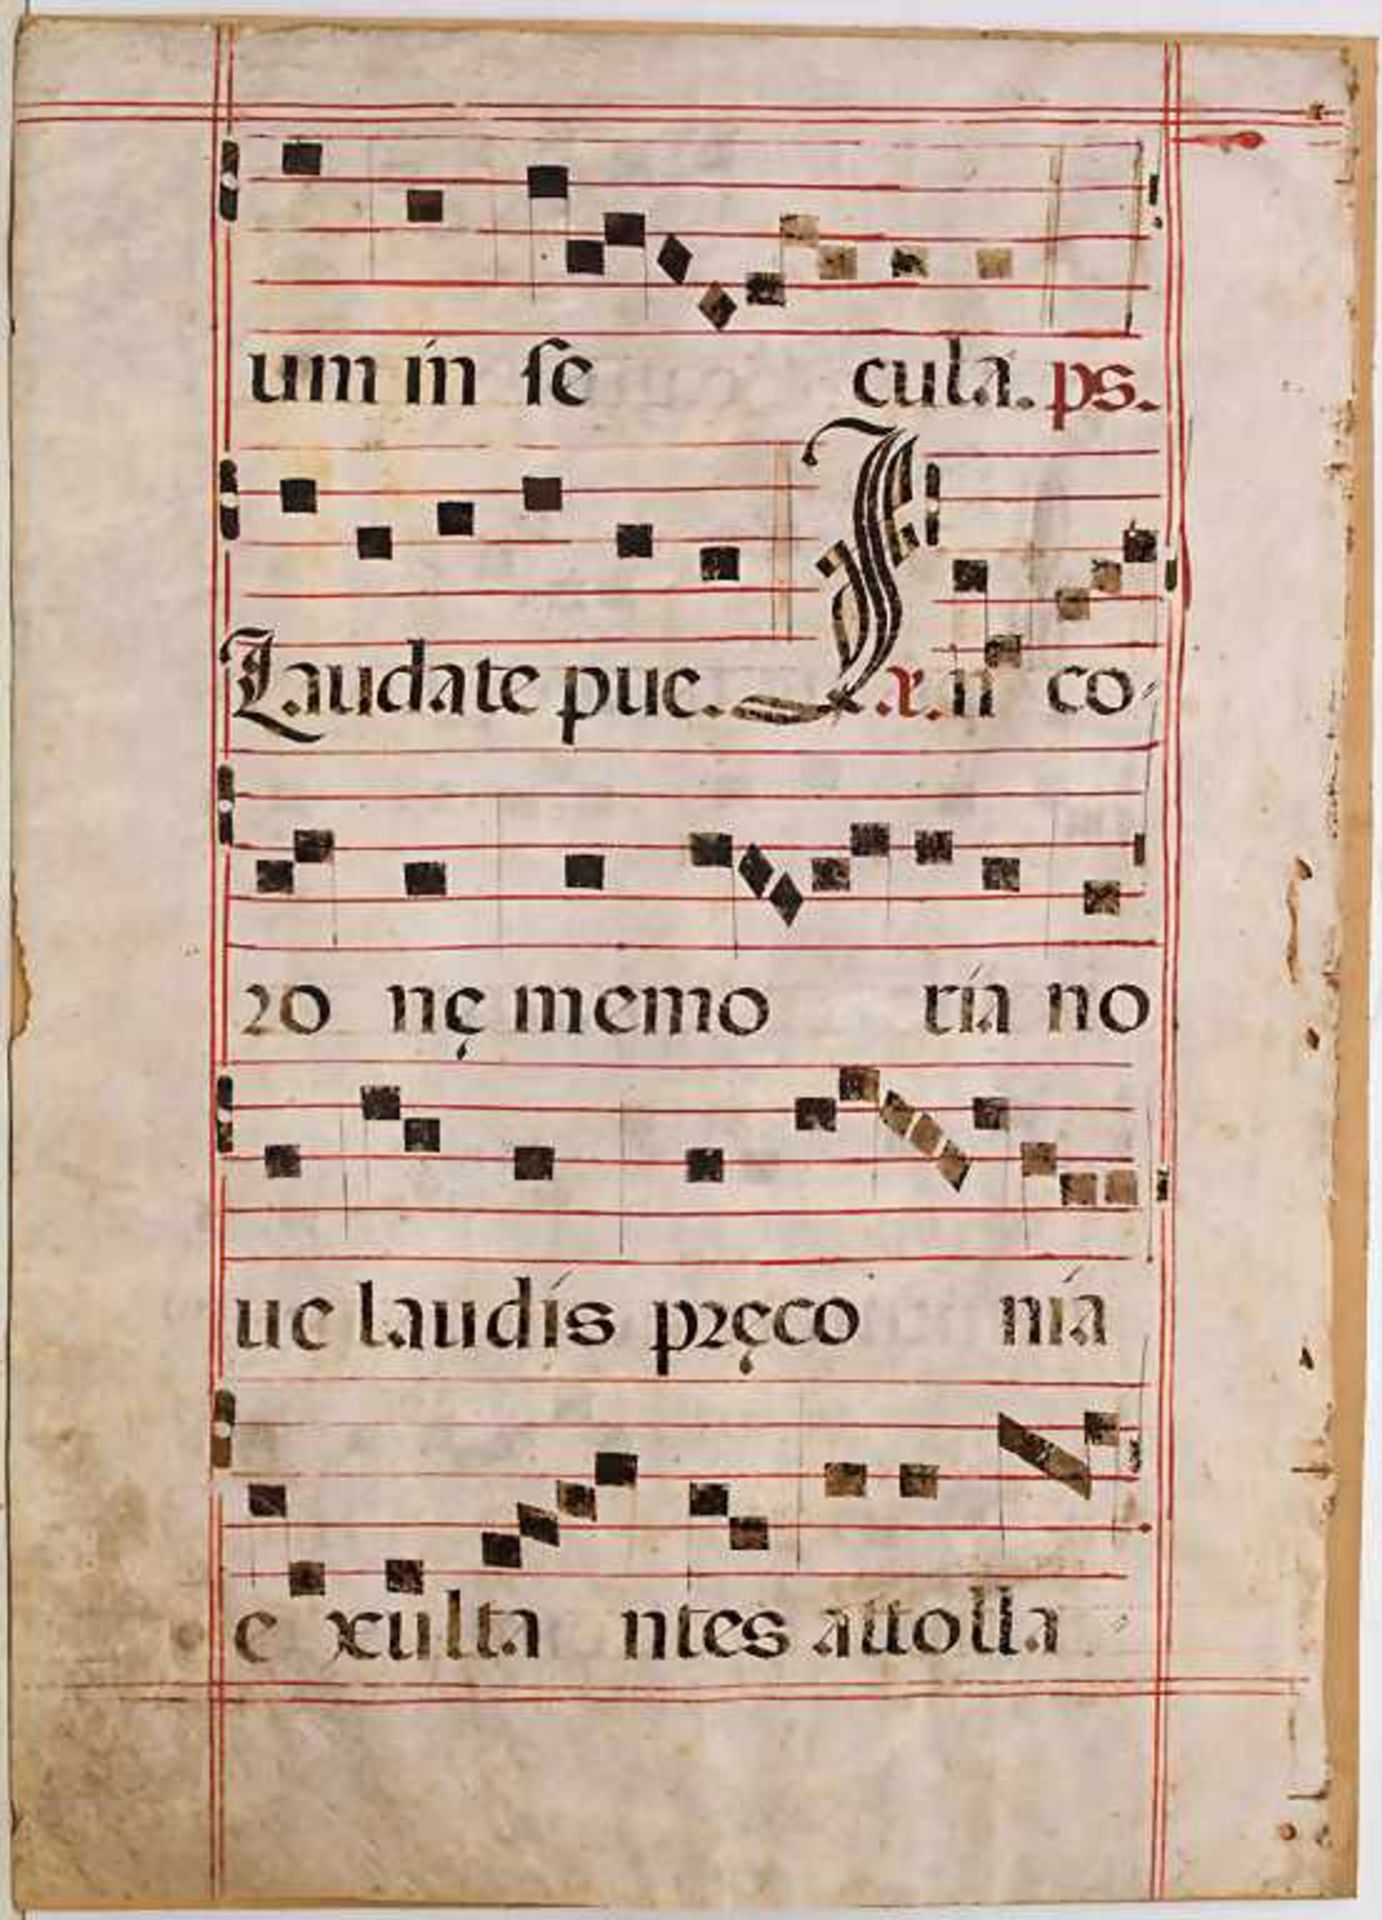 um in se cula. ps.
Laudate pue. I x. n co
ro nę memo ria no
ue laudis pręco nia
e xulta ntes attolla